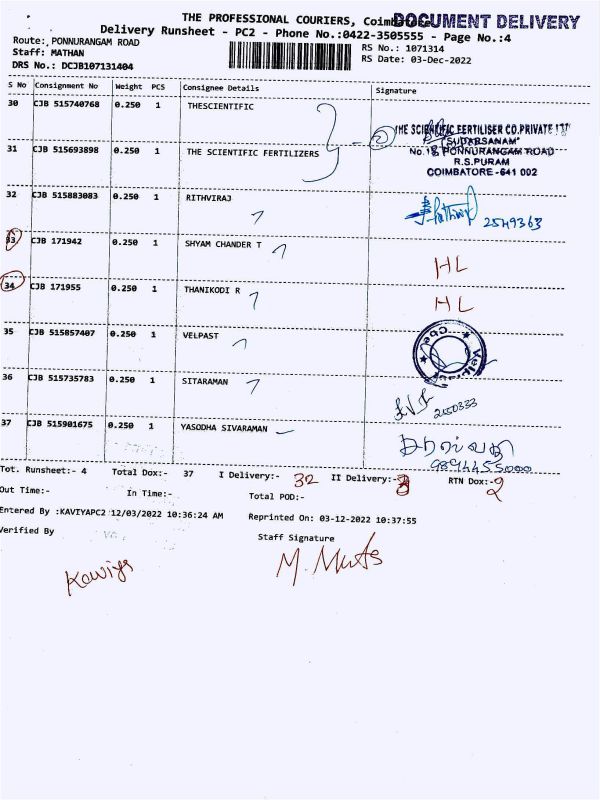 THE PROFESSIONAL COURIERS, Coimbatore DOCUMENT DELIVERY
Delivery Runsheet - PC2 - Phone No.:0422-3505555 - Page No.:4
Route: PONNURANGAM ROAD
RS No.: 1071314
Staff: MATHAN
RS Date: 03-Dec-2022
DRS No.: DCJB107131404
S No Consignment No Weight PCS Consignee Details Signature
30 CJB 515740768 0.250 1 THESCIENTIFIC
2 THE SCIENTIFIC FERTILISER CO.PRIVATE LTD
"SUDARSANAM"
31 CJB 515693898 0.250 1 THE SCIENTIFIC FERTILIZERS No.18, PONNURANGAM ROAD
R.S.PURAM
COIMBATORE-641 002
32 CJB 515883083 0.250 1 RITHVIRAJ
2549363
33 CJB 171942 0.250 1 SHYAM CHANDER T HL
34 CJB 171955 0.250 1 THANIKODI R HL
35 CJB 515857407 0.250 1 VELPAST
36 CJB 515735783 0.250 1 SITARAMAN
2150333
37 CJB 515901675 0.250 1 YASODHA SIVARAMAN
Tot. Runsheet:- 4 Total Dox:- 37 I Delivery:- 32 II Delivery:-3 RTN Dox:-2
Out Time:- In Time:- Total POD:-
Entered By :KAVIYAPC2 12/03/2022 10:36:24 AM Reprinted On: 03-12-2022 10:37:55
Verified By Staff Signature
Kaviya